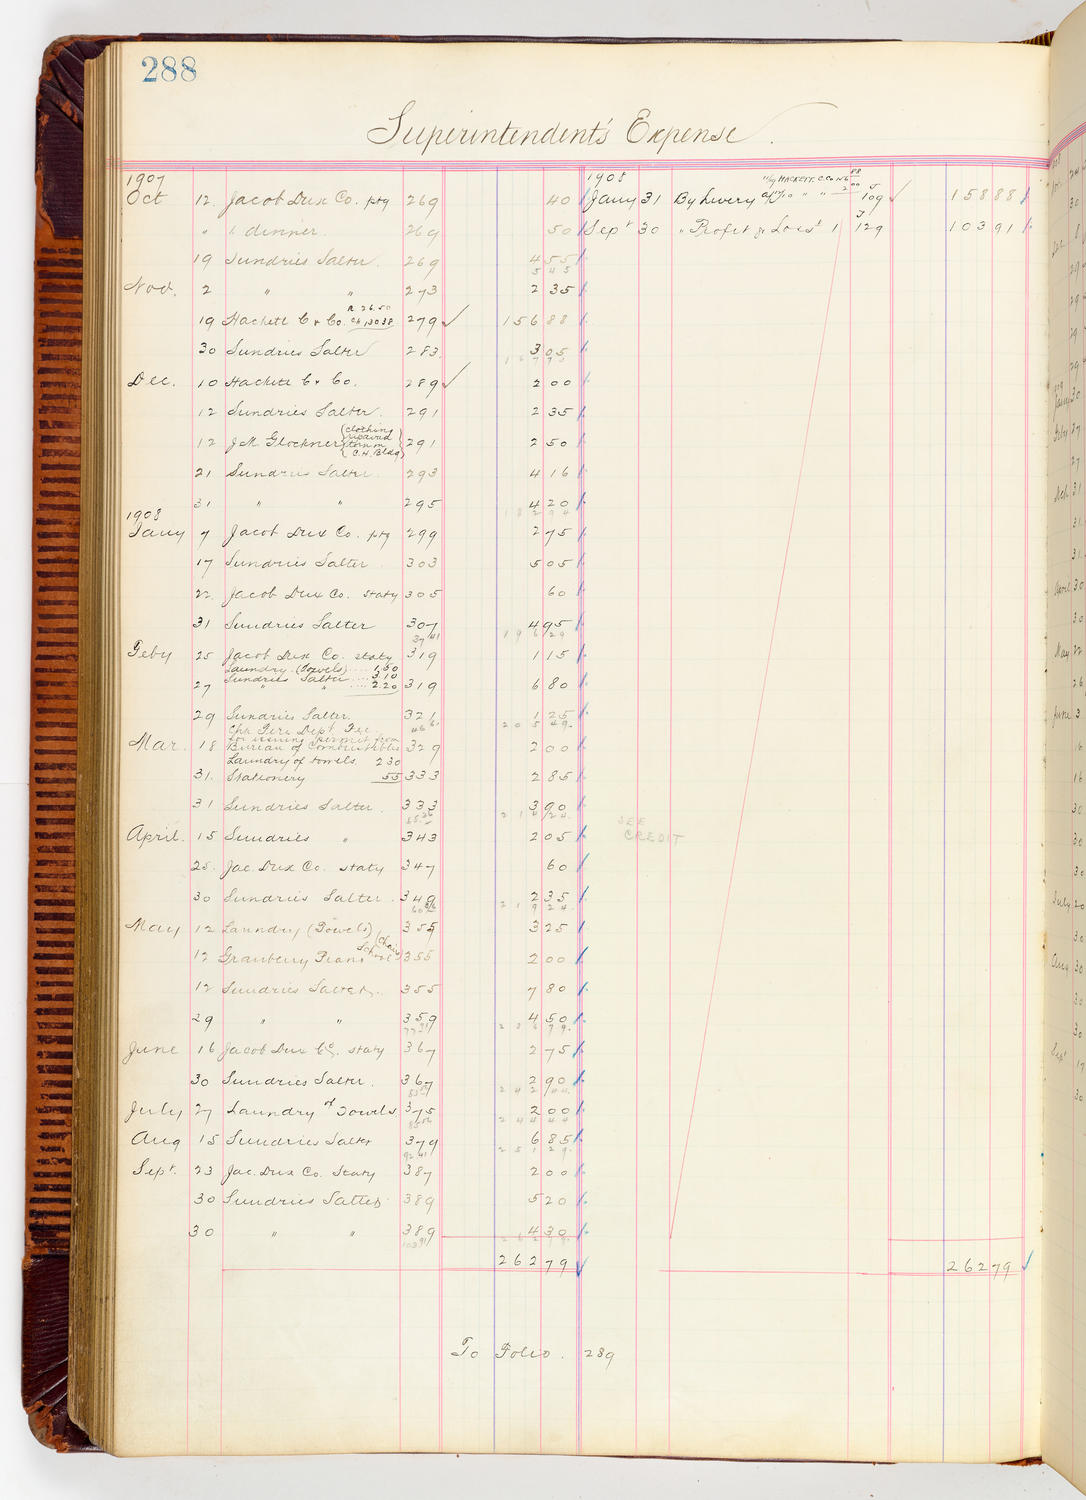 288
Superintendent's Expense
1907
Oct 12. Jacob Dux Co. ptg 269 40
" " dinner. 269 50
19 Sundries Salter. 269 4 55
5 45
Nov. 2 " " 273 2 35
R 26.50
19 Hackett C & Co. CH 130 38 279 ✓ 156 88
30 Sundries Salter 283. 3 05
Dec. 10 Hackett C & Co. 289 ✓ 2 00
12 Sundries Salter. 291 2 35
12 J M Glockner (clothing repaired C.H. Bldg) 291 2 50
21 Sundries Salter. 293 4 16
31 " " 295 4 20
182 94
1908
Jany 7 Jacob Dux Co. ptg 299 2 75
17 Sundries Salter 303 5 05
22. Jacob Dux Co. staty 305 60
31 Sundries Salter 307 4 95
37 41 196 29
Feby 25 Jacob Dux Co. staty 319 1 15
Laundry (Towels) .... 1.50
Sundries Salter .... 3.10
27 " " .... 2.20 319 6 80
29 Sundries Salter. 321 1 25
205 49
Chg. Fire Dept. Fee
for issuing permit from
Mar. 18 Bureau of Combustibles 329 2 00
Laundry of towels. 2 30
31. Stationery 55 333 2 85
31 Sundries Salter. 333 3 90
214 24
April. 15 Sundries " 343 2 05
25. Jac. Dux Co. staty 347 60
30 Sundries Salter. 349 2 35
219 24
May 12 Laundry (Towels) 355 3 25
12 Granberry Piano School (Chairs) 355 2 00
12 Sundries Salter. 355 7 80
29 " " 359 4 50
236 79
June 16 Jacob Dux Co. staty 367 2 75
30 Sundries Salter. 367 2 90
242 44
July 27 Laundry of Towels 375 2 00
244 44
Aug 15 Sundries Salter 379 6 85
251 29
Sept. 23 Jac. Dux Co. Staty 387 2 00
30 Sundries Salter 389 5 20
30 " " 389 4 30
103 91 262 79
262 79 ✓
To Folio. 289
1908
11/19 HACKETT. C. Co 156 88
Jany 31 By Livery 12/10 " " 2 00 J 109 ✓ 158 88
Sept 30 " Profit & Loss J 129 103 91
SEE
CREDIT
262 79 ✓